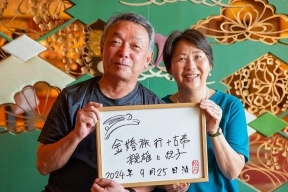 金婚旅行+古希
稔雄と 子
2024年9月25日泊